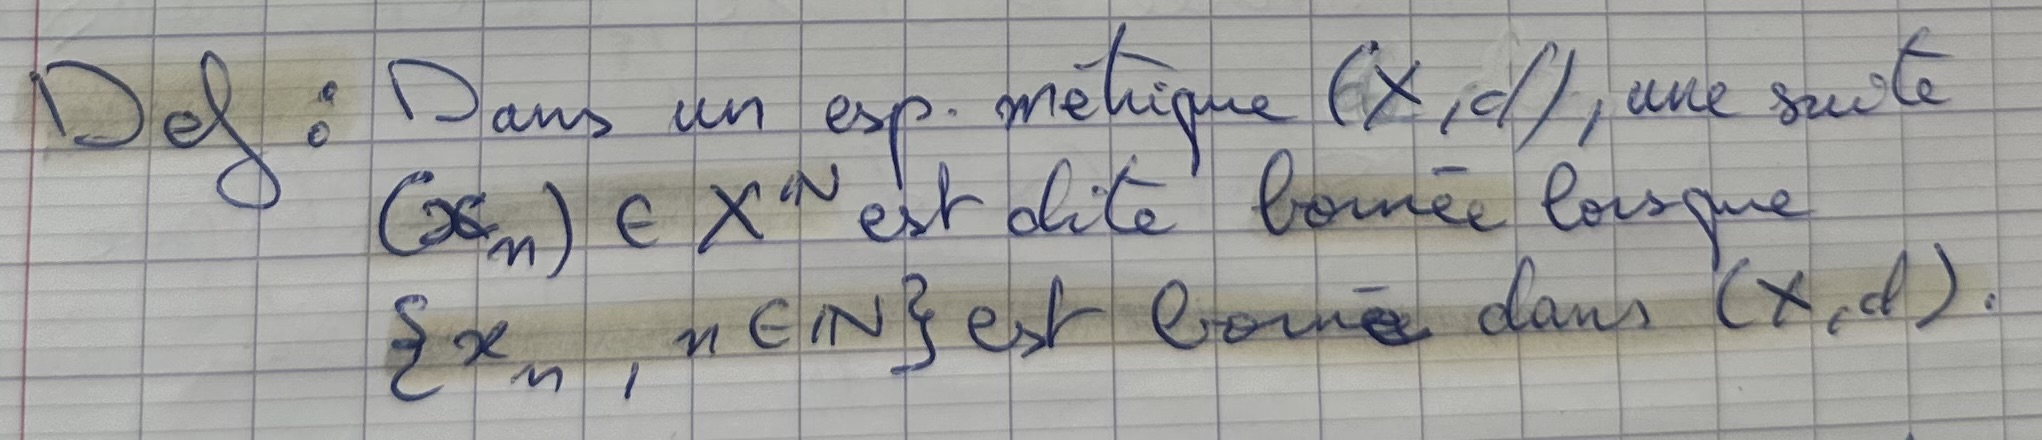 Def : Dans un esp. métrique (X, d), une suite
(xₙ) ∈ X^ℕ est dite bornée lorsque
{xₙ, n ∈ ℕ} est bornée dans (X, d).